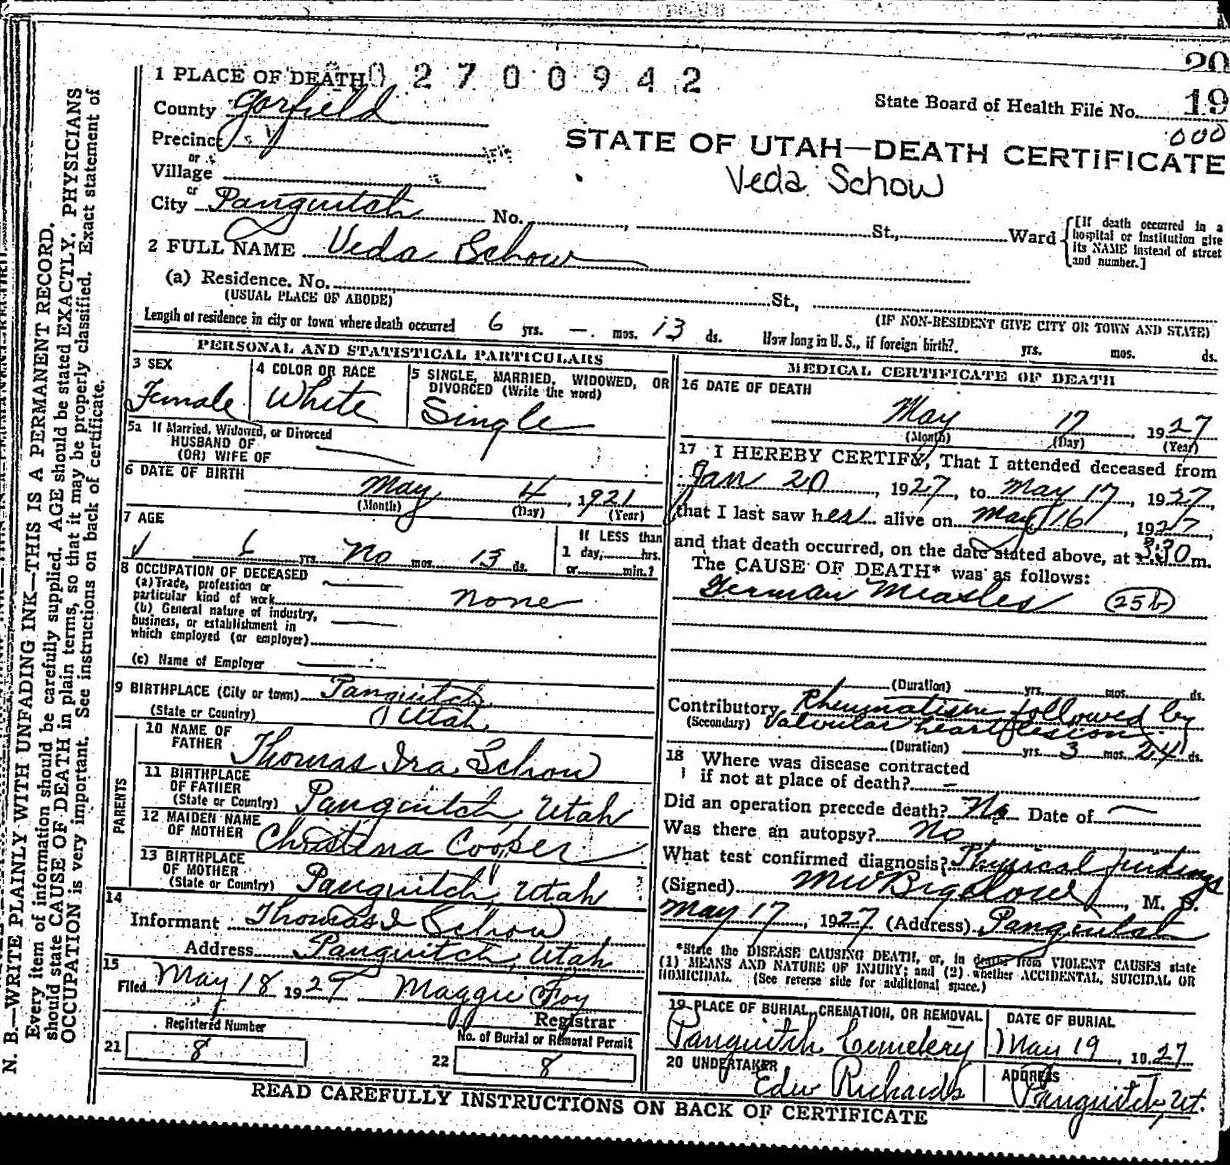 20
1 PLACE OF DEATH 02700942
State Board of Health File No. 19
000
County Garfield
Precinct
STATE OF UTAH—DEATH CERTIFICATE
or
Village
Veda Schow
or
City Panguitch No. St., Ward
[If death occurred in a hospital or institution give its NAME instead of street and number.]
2 FULL NAME Veda Schow
(a) Residence. No. St.,
(USUAL PLACE OF ABODE) (IF NON-RESIDENT GIVE CITY OR TOWN AND STATE)
Length of residence in city or town where death occurred 6 yrs. — mos. 13 ds. How long in U. S., if foreign birth? yrs. mos. ds.
PERSONAL AND STATISTICAL PARTICULARS
3 SEX
Female
4 COLOR OR RACE
White
5 SINGLE, MARRIED, WIDOWED, OR
DIVORCED (Write the word)
Single
5a If Married, Widowed, or Divorced
HUSBAND OF
(OR) WIFE OF
6 DATE OF BIRTH
May 4, 1921
(Month) (Day) (Year)
7 AGE
6 yrs. No mos. 13 ds.
If LESS than
1 day, hrs.
or min.?
8 OCCUPATION OF DECEASED
(a) Trade, profession or
particular kind of work
none
(b) General nature of industry,
business, or establishment in
which employed (or employer)
(c) Name of Employer
9 BIRTHPLACE (City or town) Panguitch
(State or Country) Utah
PARENTS
10 NAME OF
FATHER Thomas Ira Schow
11 BIRTHPLACE
OF FATHER
(State or Country) Panguitch, Utah
12 MAIDEN NAME
OF MOTHER Christena Cooper
13 BIRTHPLACE
OF MOTHER
(State or Country) Panguitch, Utah
14
Informant Thomas I Schow
Address Panguitch, Utah
15
Filed May 18 1927 Maggie Foy
Registrar
Registered Number
21 8
No. of Burial or Removal Permit
22 8
MEDICAL CERTIFICATE OF DEATH
16 DATE OF DEATH
May 17, 1927
(Month) (Day) (Year)
17 I HEREBY CERTIFY, That I attended deceased from
Jan 20, 1927, to May 17, 1927,
that I last saw her alive on May 16, 1927,
and that death occurred, on the date stated above, at 3:30 m.
The CAUSE OF DEATH* was as follows:
German Measles (25b)
(Duration) yrs. mos. ds.
Contributory Rheumatism followed by
(Secondary) Valvular heart lesion
(Duration) yrs. 3 mos. 24 ds.
18 Where was disease contracted
if not at place of death? —
Did an operation precede death? No Date of —
Was there an autopsy? No
What test confirmed diagnosis? Physical findings
(Signed) MW Bigelow, M. D.
May 17, 1927 (Address) Panguitch
*State the DISEASE CAUSING DEATH, or, in deaths from VIOLENT CAUSES state
(1) MEANS AND NATURE OF INJURY; and (2) whether ACCIDENTAL, SUICIDAL OR
HOMICIDAL. (See reverse side for additional space.)
19 PLACE OF BURIAL, CREMATION, OR REMOVAL
Panguitch Cemetery
DATE OF BURIAL
May 19, 1927
20 UNDERTAKER
Edw Richards
ADDRESS
Panguitch, Ut.
READ CAREFULLY INSTRUCTIONS ON BACK OF CERTIFICATE
N. B.—WRITE PLAINLY WITH UNFADING INK—THIS IS A PERMANENT RECORD.
Every item of information should be carefully supplied. AGE should be stated EXACTLY. PHYSICIANS
should state CAUSE OF DEATH in plain terms, so that it may be properly classified. Exact statement of
OCCUPATION is very important. See instructions on back of certificate.